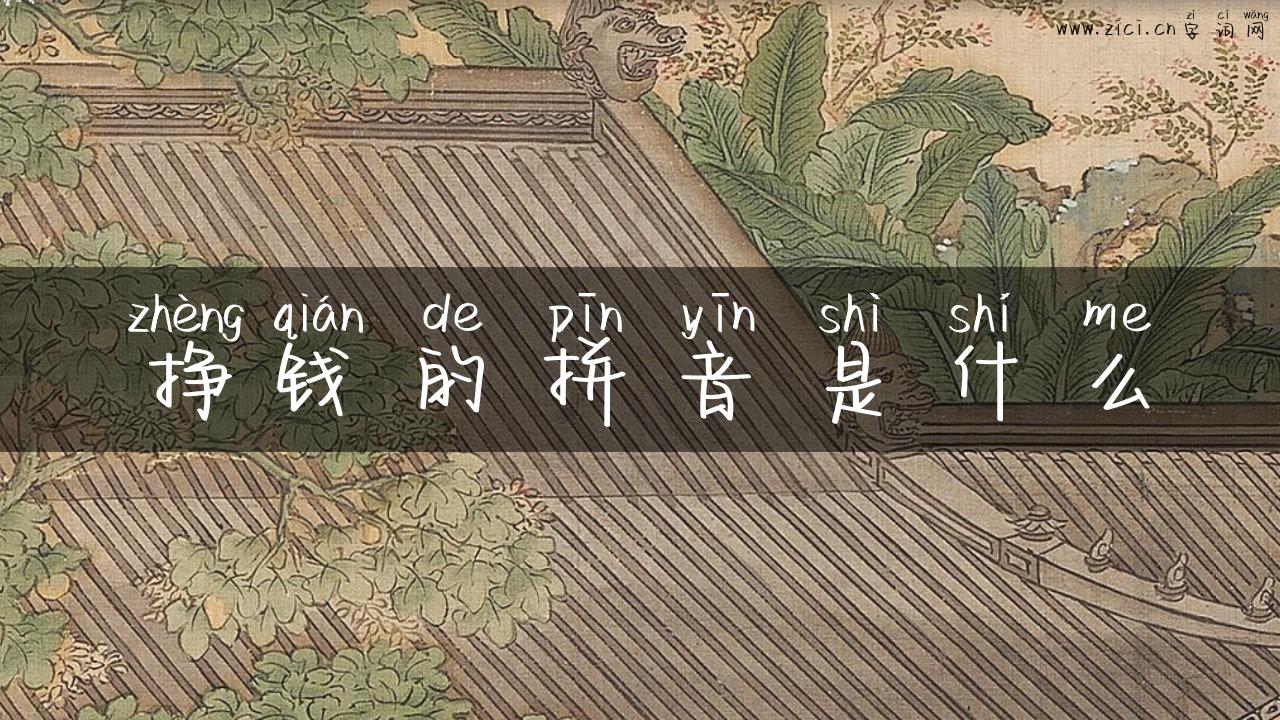 zì cí wǎng
www.zici.cn 字词网
zhèng qián de pīn yīn shì shí me
挣钱的拼音是什么